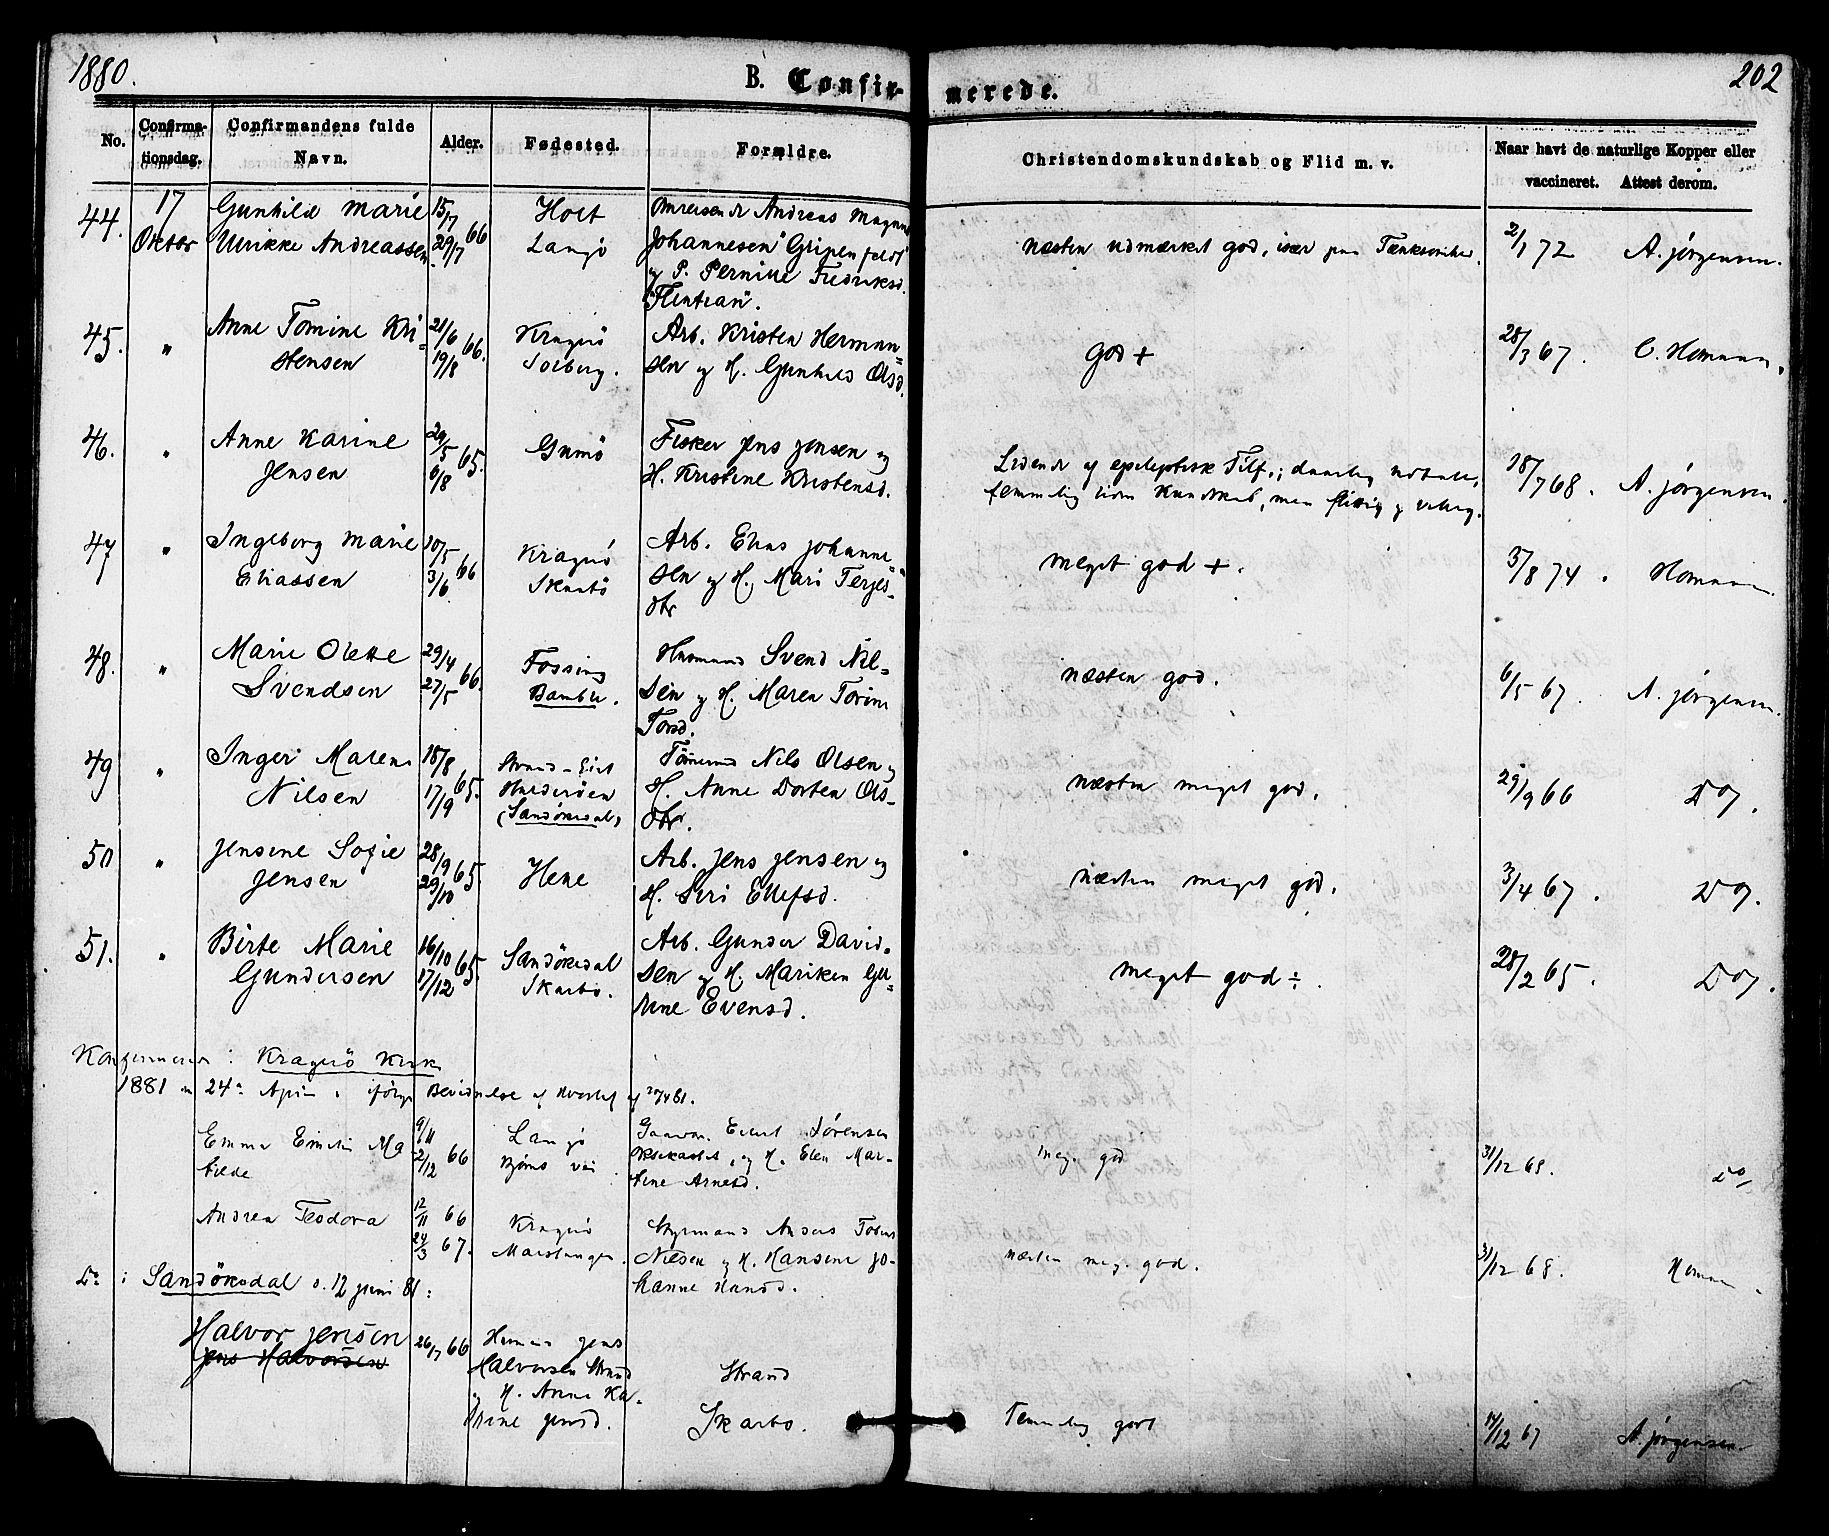 1880. B. Confir- merede. 202
No. Confirma- tionsdag. Confirmandens fulde Navn. Alder. Fødested. Forældre. Christendomskundskab og Flid m. v. Naar havt de naturlige Kopper eller vaccineret. Attest derom.
44. 17 Gunhild Marie 15/7 66 Holt Andreas Magnus
Oktbr Ulrikke Andreassen 29/7 Langö Johannesen "Gripenfeldt" næsten udmærket god, især paa 2/1 72 A. Jörgensen.
og P. Pernille Fredriksd.
45. " Anne Tomine Kri= 21/6 66. Kragerö Arb. Kristen Herman= God + 28/3 67. C. Homann.
stensen 19/8 Solberg. sen og H. Gunhild Olsd.
46. " Anne Karine 29/5 65. Gumö Fisker Jens Jensen og Lidende af epileptisk Tilf.;
Jensen 6/8 H. Kristine Kristensd. temmelig liden Kundskab, men flittig og 18/7 68. A. Jörgensen.
47 " Ingeborg Marie 10/5 66 Kragerö Arb. Elias Johanne= meget god +. 3/8 74. Homann.
Eliassen 3/6 Skaatö sen og H. Mari Terjes-
dtr
48. " Marie Olette 29/4 66. Fossing Husmand Svend Nil= næsten god. 6/5 67. A. Jörgensen.
Svendsen 27/5 Bamble. sen og H. Maren
Torsd.
49 " Inger Maren 18/8 65. Nils Olsen og næsten meget god. 29/9 66 Do.
Nilsen 17/9 (Sandökedal) H. Anne Dorten Ols-
dtr.
50 " Jensine Sofie 28/9 65. Helle Arb. Jens Jensen og næsten meget god. 3/4 67. Do.
Jensen 29/10 H. Siri Ellefsd.
51. " Birte Marie 16/10 65. Sandökedal Arb. Gunder David= meget god ÷. 28/2 65. Do.
Gundersen 17/12 Skarbo. sen og H. Mariken Gu=
nine Evensd.
Konfirmerede i Kragerö Kirke
1881 24de April
Emma Emilie Ma 9/11 66 Langö Sörensen meg. god 31/12 68. Do
tilde 2/12 og H. Elen Mar-
tine Arnesd.
Andrea Teodora 12/11 66 Kragerö Styrmand Anders
24/3 67. Nilsen og H. Hansine Jo- næsten meg. god. 31/12 68. Homann
Do i Sandökedal d. 12 Juni 81: hanne
Halvor Jensen 26/7 66 Jens
Jens Halvorsen Halvorsen Strand Strand
og H. Anne Ka-
trine Jensd. Skarbo. Temmelig godt 17/12 67 A. Jörgensen